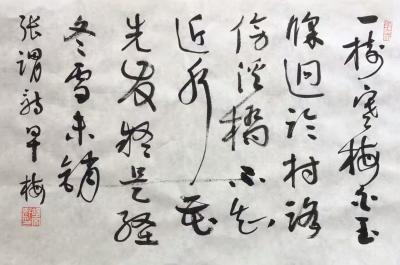 一树寒梅白玉
条迥临村路
傍溪桥不知
近水花
先发疑是经
冬雪未销
张谓诗早梅